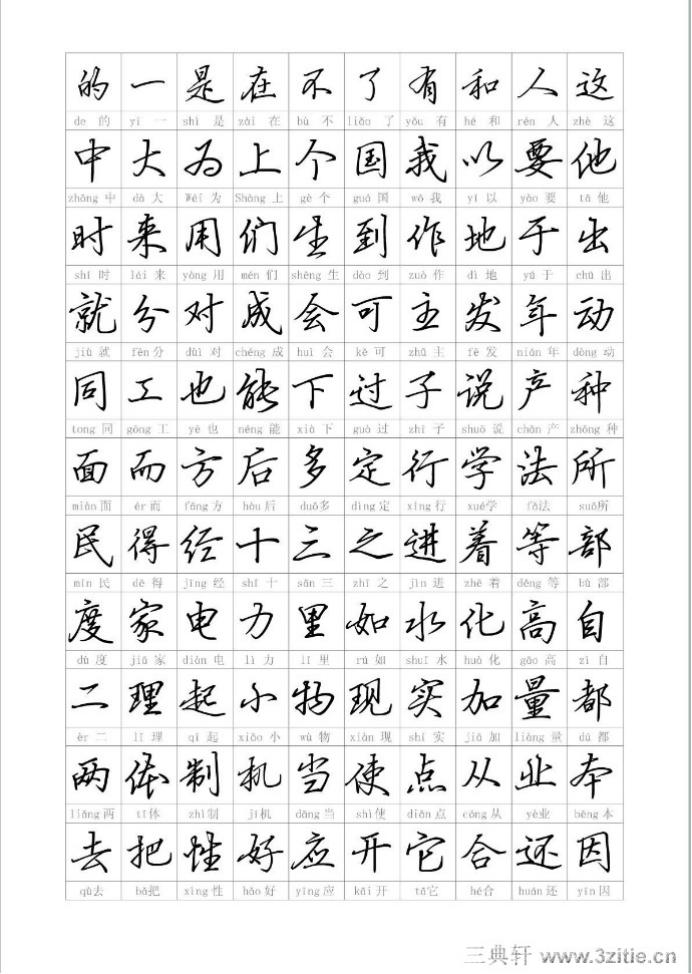 的 一 是 在 不 了 有 和 人 这
de 的 yi 一 shì 是 zài 在 bù 不 liǎo 了 yǒu 有 hé 和 rén 人 zhè 这
中 大 为 上 个 国 我 以 要 他
zhōng 中 dà 大 Wéi 为 Shàng 上 gè 个 guó 国 wǒ 我 yǐ 以 yào 要 tā 他
时 来 用 们 生 到 作 地 于 出
shí 时 lái 来 yòng 用 mén 们 shēng 生 dào 到 zuò 作 dì 地 yú 于 chū 出
就 分 对 成 会 可 主 发 年 动
jiù 就 fēn 分 duì 对 chéng 成 huì 会 kě 可 zhǔ 主 fā 发 nián 年 dòng 动
同 工 也 能 下 过 子 说 产 种
tong 同 gōng 工 yě 也 néng 能 xià 下 guò 过 zhǐ 子 shuō 说 chǎn 产 zhǒng 种
面 而 方 后 多 定 行 学 法 所
miàn 面 ér 而 fāng 方 hòu 后 duō 多 dìng 定 xíng 行 xué 学 fǎ 法 suǒ 所
民 得 经 十 三 之 进 着 等 部
mín 民 dé 得 jīng 经 shí 十 sān 三 zhī 之 jìn 进 zhe 着 děng 等 bù 部
度 家 电 力 里 如 水 化 高 自
dù 度 jiā 家 diàn 电 lì 力 lǐ 里 rú 如 shuǐ 水 huà 化 gāo 高 zì 自
二 理 起 小 物 现 实 加 量 都
èr 二 lǐ 理 qǐ 起 xiǎo 小 wù 物 xiàn 现 shí 实 jiā 加 liàng 量 dū 都
两 体 制 机 当 使 点 从 业 本
liǎng 两 tǐ 体 zhì 制 jī 机 dāng 当 shǐ 使 diǎn 点 cóng 从 yè 业 běng 本
去 把 性 好 应 开 它 合 还 因
qù 去 bǎ 把 xìng 性 hǎo 好 yīng 应 kāi 开 tā 它 hé 合 huán 还 yīn 因
三典轩 www.3zitie.cn